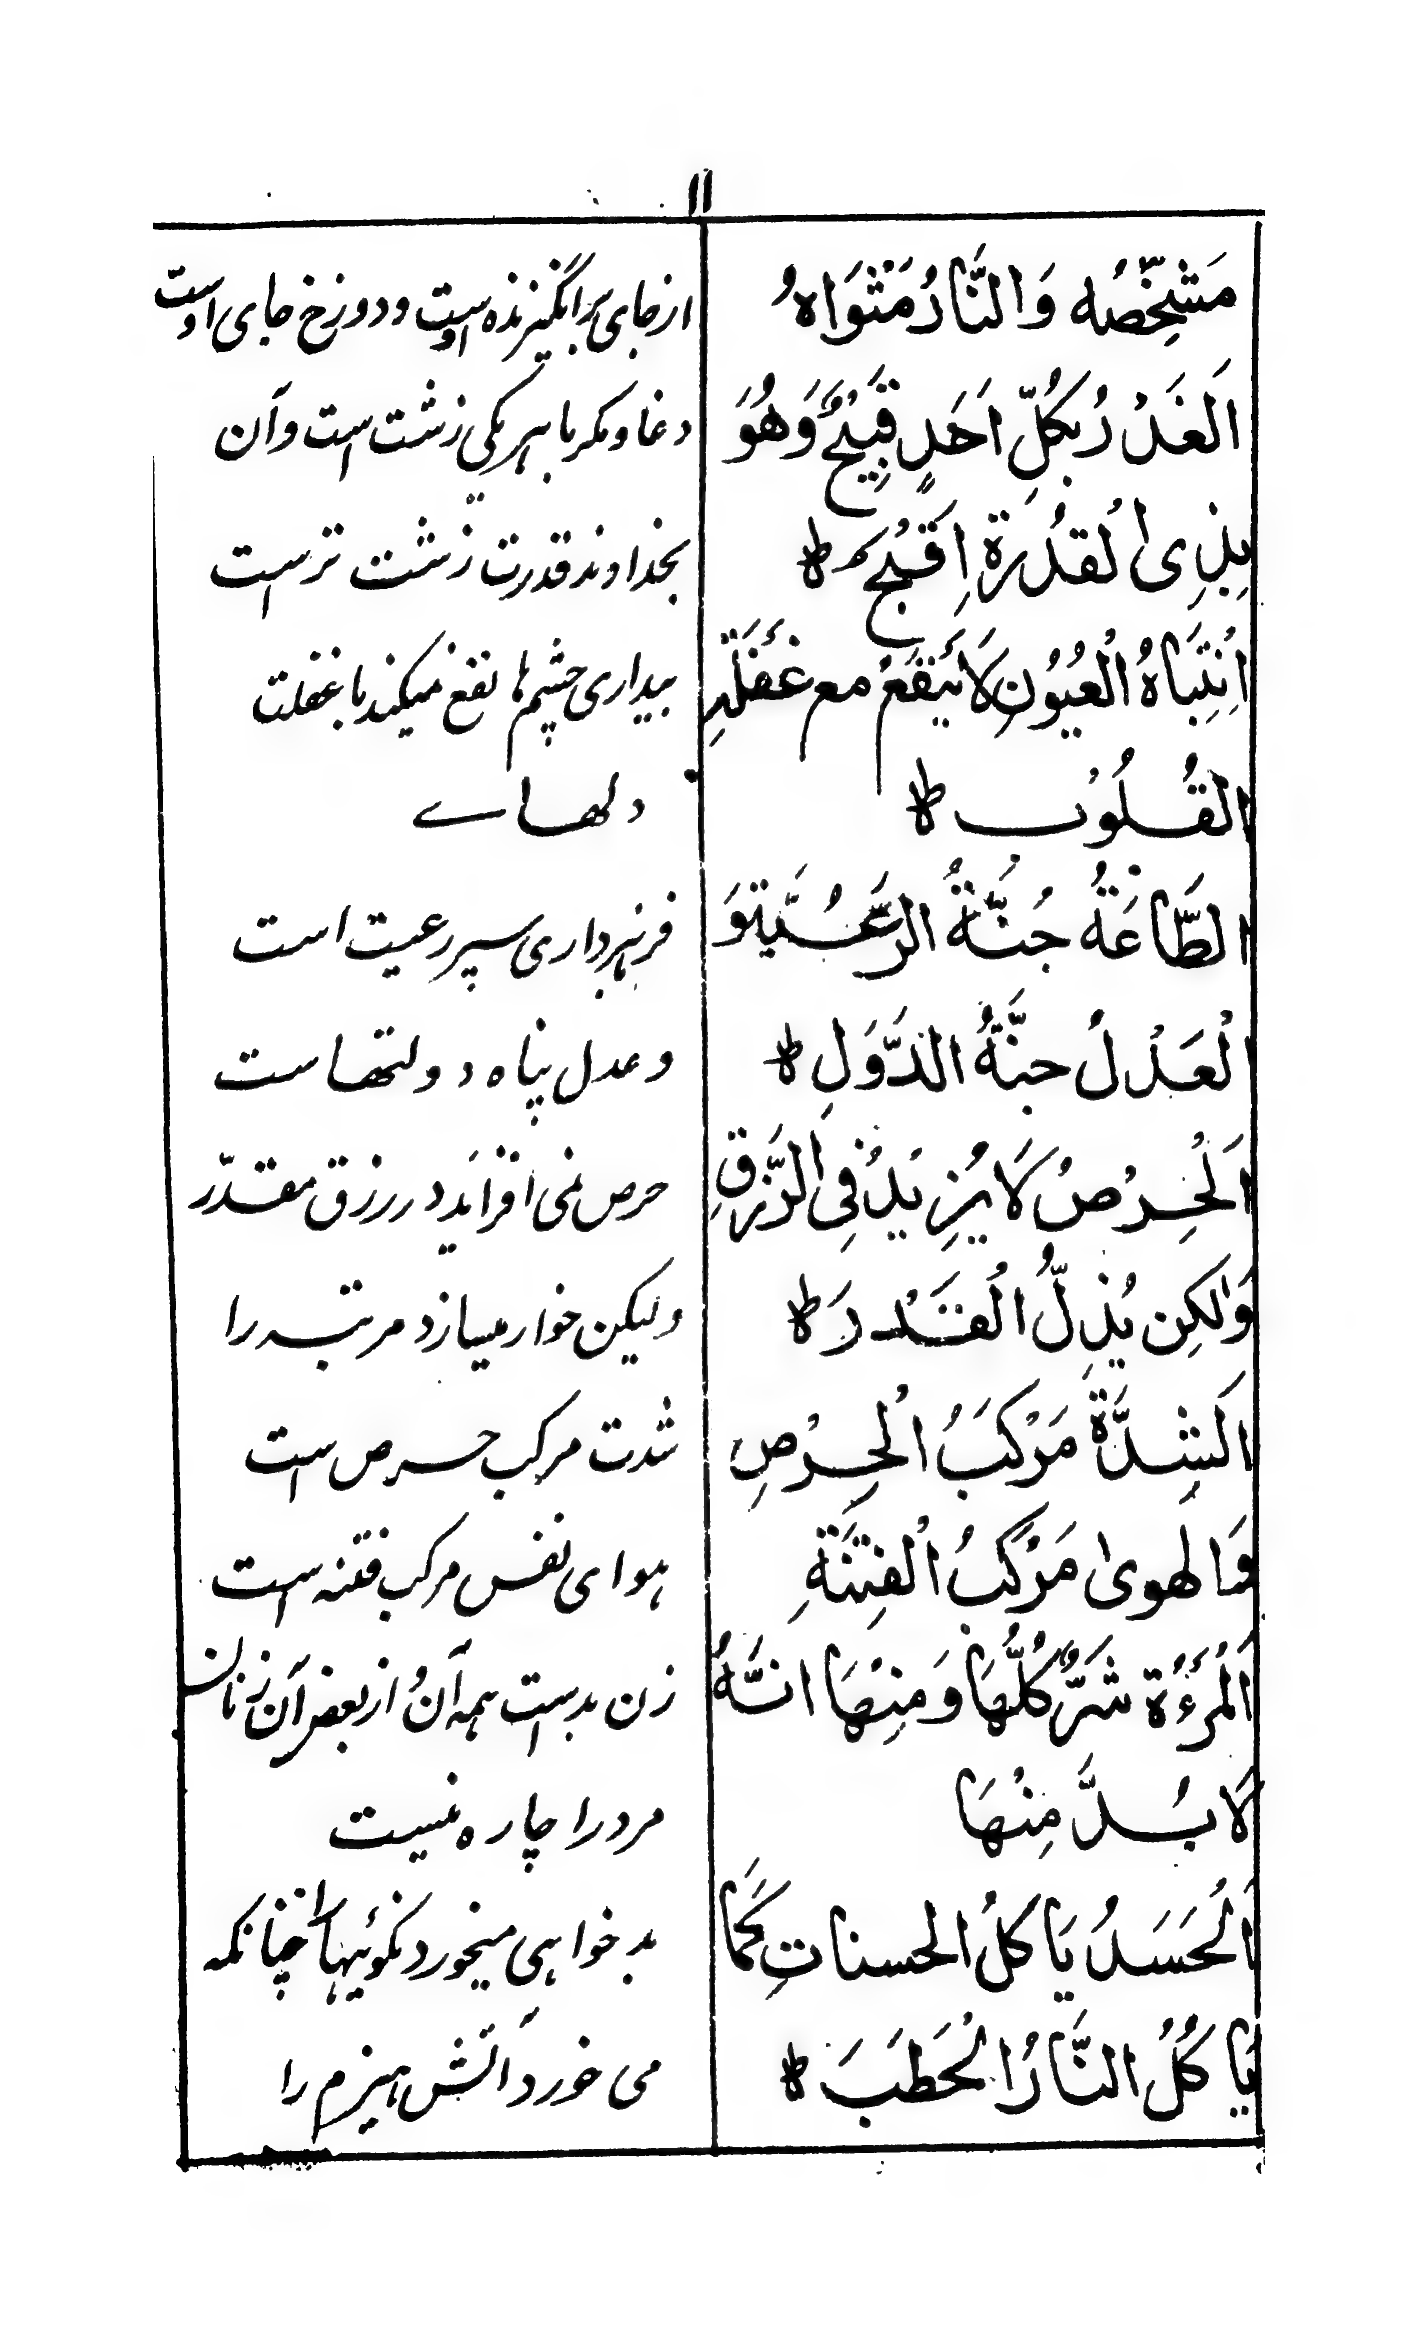 ۱۱
مَشْخِّصُه وَالنَّارُ مَثْوَاهُ
از جای برانگیزنده اوست و دوزخ جای اوست
اَلغَدْرُ بِكُلِّ اَحَدٍ قَبِيْحٌ وَهُوَ
دغا و مکر با هر یکی زشت است و آن
بِذِى الْقدُرَةِ اَقْبَحُ ط
بخداوند قدرت زشت ترست
اِنْتِبَاهُ الْعُيُونِ لَا يَنْفَعُ مع غَفْلَةِ
بیداری چشم ها نفع نمیکند با غفلت
القُلُوْب ط
دلهاے
الطَّاعَةُ جُنَّةُ الرَّعِيَّةِ وَ
فرمانبرداری سپر رعیت است
الْعَدْلُ جنَّةُ الدَّوَلِ ط
و عدل پناه دولتهاست
اَلْحِرْصُ لَا يَزِيْدُ فِى الرِّزْقِ
حرص نمی افزاید در رزق مقدّر
وَلٰكِن يُذِلُّ الْقَدْرَ ط
ولیکن خوار میسازد مرتبه را
اَلشِدَّةُ مَرْكَبُ الْحِرْصِ
شدت مرکب حرص است
وَالهوىٰ مَرْكَبُ الْفِتْنَةِ
هوای نفس مرکب فتنه است
اَلْمَرْءَةُ شَرٌّ كُلُّهَا وَ مِنْهَا انَّهُ
زن بدست همه آن و از بعض آن زنان
لَا بُدَّ مِنْهَا
مرد را چاره نیست
اَلْحَسَدُ يَاكلُ الحسناتِ كَمَا
بدخواهی میخورد نکوئیها را چنانکه
يَاكُلُ النَّارُ الْحَطَبَ ط
می خورد آتش هیزم را